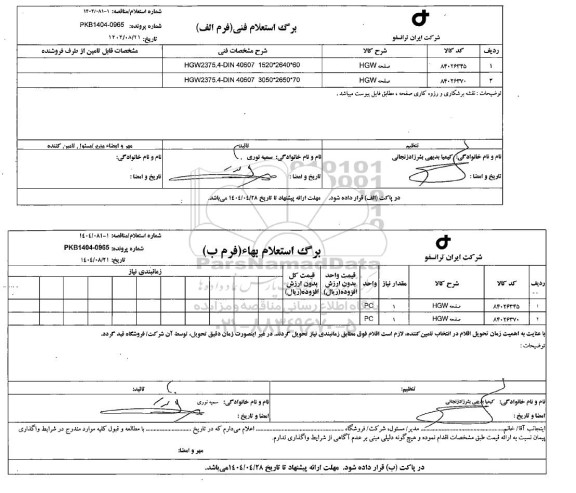 برگ استعلام فنی(فرم الف)
شرکت ایران ترانسفو
شماره استعلام/مناقصه: ۱۴۰۴/۰۸۱-۱
شماره پرونده: PKB1404-0965
تاریخ: ۱۴۰۴/۰۸/۲۱
ردیف کد کالا شرح کالا شرح مشخصات فنی مشخصات قابل تامین از طرف فروشنده
۱ ۸۴۰۲۶۳۴۵ صفحه HGW HGW2375.4-DIN 40607 1520*2640*60
۲ ۸۴۰۲۶۳۷۰ صفحه HGW HGW2375.4-DIN 40607 3050*2650*70
توضیحات : نقشه برشکاری و رزوه کاری صفحه ، مطابق فایل پیوست میباشد .
تنظیم تائید: مهر و امضاء مدیر/مسئول تامین کننده
نام و نام خانوادگی: کیمیا بدیهی بشرزادزنجانی نام و نام خانوادگی: سمیه نوری نام و نام خانوادگی:
تاریخ و امضا : تاریخ و امضا : تاریخ و امضا :
در پاکت (الف) قرار داده شود. مهلت ارائه پیشنهاد تا تاریخ ۱۴۰۴/۰۴/۲۸ میباشد.
برگ استعلام بهاء(فرم ب)
شرکت ایران ترانسفو
شماره استعلام/مناقصه: ۱۴۰۴/۰۸۱-۱
شماره پرونده: PKB1404-0965
تاریخ: ۱۴۰۴/۰۸/۲۱
ردیف کد کالا شرح کالا مقدار نیاز واحد قیمت واحد بدون ارزش افزوده(ریال) قیمت کل بدون ارزش افزوده(ریال) زمانبندی نیاز
۱ ۸۴۰۲۶۳۴۵ صفحه HGW ۱ PC
۲ ۸۴۰۲۶۳۷۰ صفحه HGW ۱ PC
با عنایت به اهمیت زمان تحویل اقلام در انتخاب تامین کننده، لازم است اقلام فوق مطابق زمانبندی نیاز تحویل گردد. در غیر اینصورت زمان دقیق تحویل، توسعه آن شرکت/فروشگاه قید گردد.
توضیحات:
تنظیم: تائید:
نام و نام خانوادگی: کیمیا بدیهی بشرزادزنجانی نام و نام خانوادگی: سمیه نوری
امضا و تاریخ: امضا و تاریخ :
اینجانب آقا/ خانم مدیر/ مسئول، شرکت/ فروشگاه اعلام می‌دارم که در تاریخ با مطالعه و قبول کلیه موارد مندرج در شرایط واگذاری
پیمان نسبت به ارائه قیمت طبق مشخصات اقدام نموده و هیچ‌گونه دلیلی مبنی بر عدم آگاهی از شرایط واگذاری ندارم.
مهر و امضا:
در پاکت (ب) قرار داده شود. مهلت ارائه پیشنهاد تا تاریخ ۱۴۰۴/۰۴/۲۸ می‌باشد.
ParsNamadData
پایگاه اطلاع رسانی مناقصه و مزایده
۰۲۱-۸۸۳۴۹۶۷۰-۵